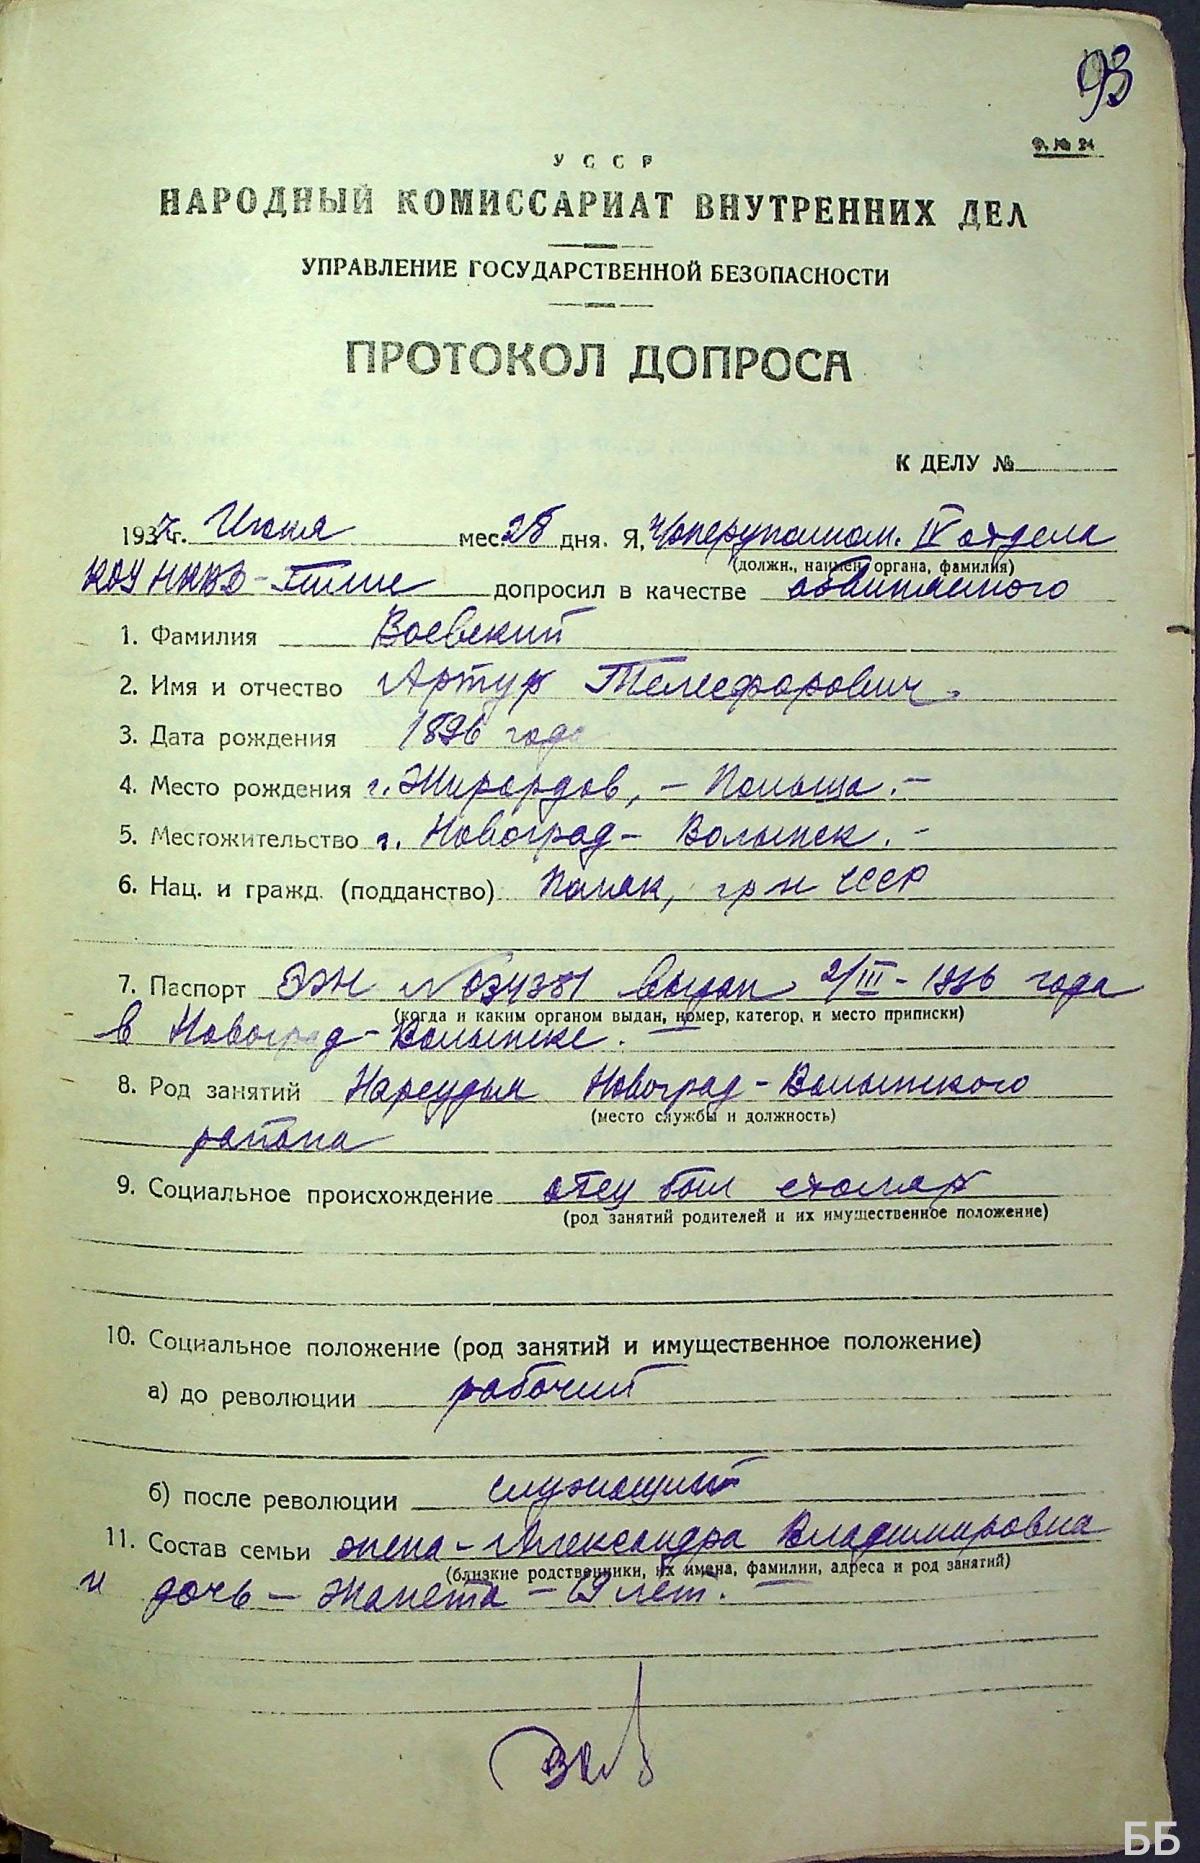 93
Ф. № 24
УССР
НАРОДНЫЙ КОМИССАРИАТ ВНУТРЕННИХ ДЕЛ
УПРАВЛЕНИЕ ГОСУДАРСТВЕННОЙ БЕЗОПАСНОСТИ
ПРОТОКОЛ ДОПРОСА
К ДЕЛУ №
1937 г. Июня мес. 28 дня. Я, оперуполном. IV отдела
(должн., наимен. органа, фамилия)
КОУ НКВД - допросил в качестве обвиняемого
1. Фамилия Воевский
2. Имя и отчество Артур Телесфорович.
3. Дата рождения 1896 года
4. Место рождения г. Жирардов, - Польша. -
5. Местожительство г. Новоград - Волынск. -
6. Нац. и гражд. (подданство) Поляк, гр-н СССР
7. Паспорт ЭЖ № 034381 выдан 2/III - 1936 года
(когда и каким органом выдан, номер, категор, и место приписки)
в Новоград - Волынске.
8. Род занятий Нарсудья Новоград - Волынского
(место службы и должность)
района
9. Социальное происхождение отец был столяр
(род занятий родителей и их имущественное положение)
10. Социальное положение (род занятий и имущественное положение)
а) до революции рабочий
б) после революции служащий
11. Состав семьи жена - Александра Владимировна
(близкие родственники, их имена, фамилии, адреса и род занятий)
и дочь - Жанета - 19 лет. -
ББ